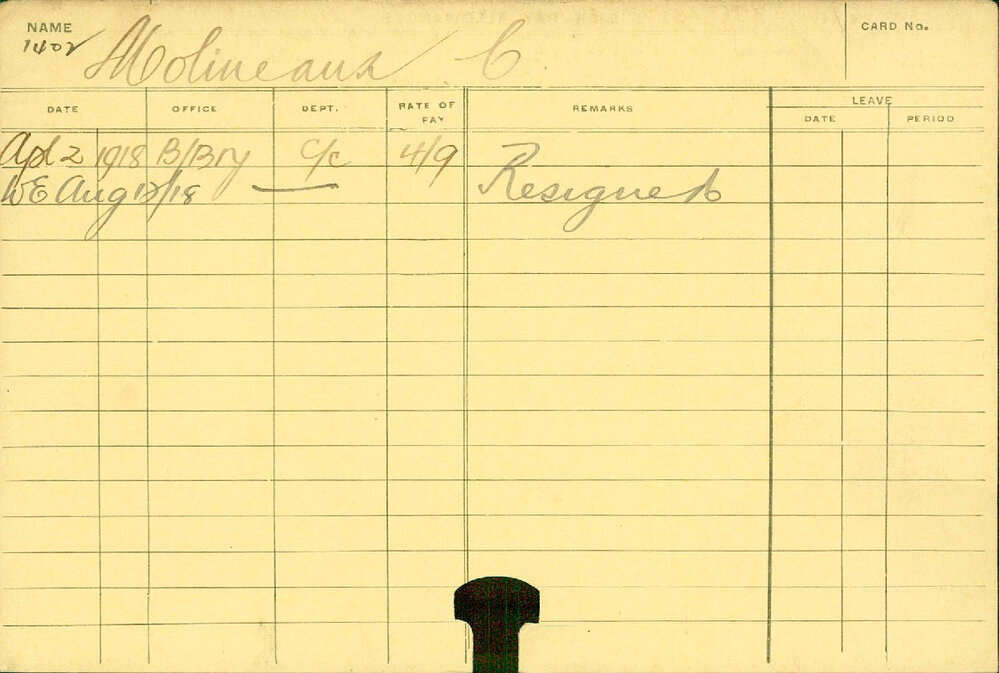 NAME
1402 Molineaux C.
CARD No.
DATE OFFICE DEPT. RATE OF PAY REMARKS LEAVE
DATE PERIOD
Apl 2 1918 B/Bry C/C 4/9 Resigned
WE Aug /18